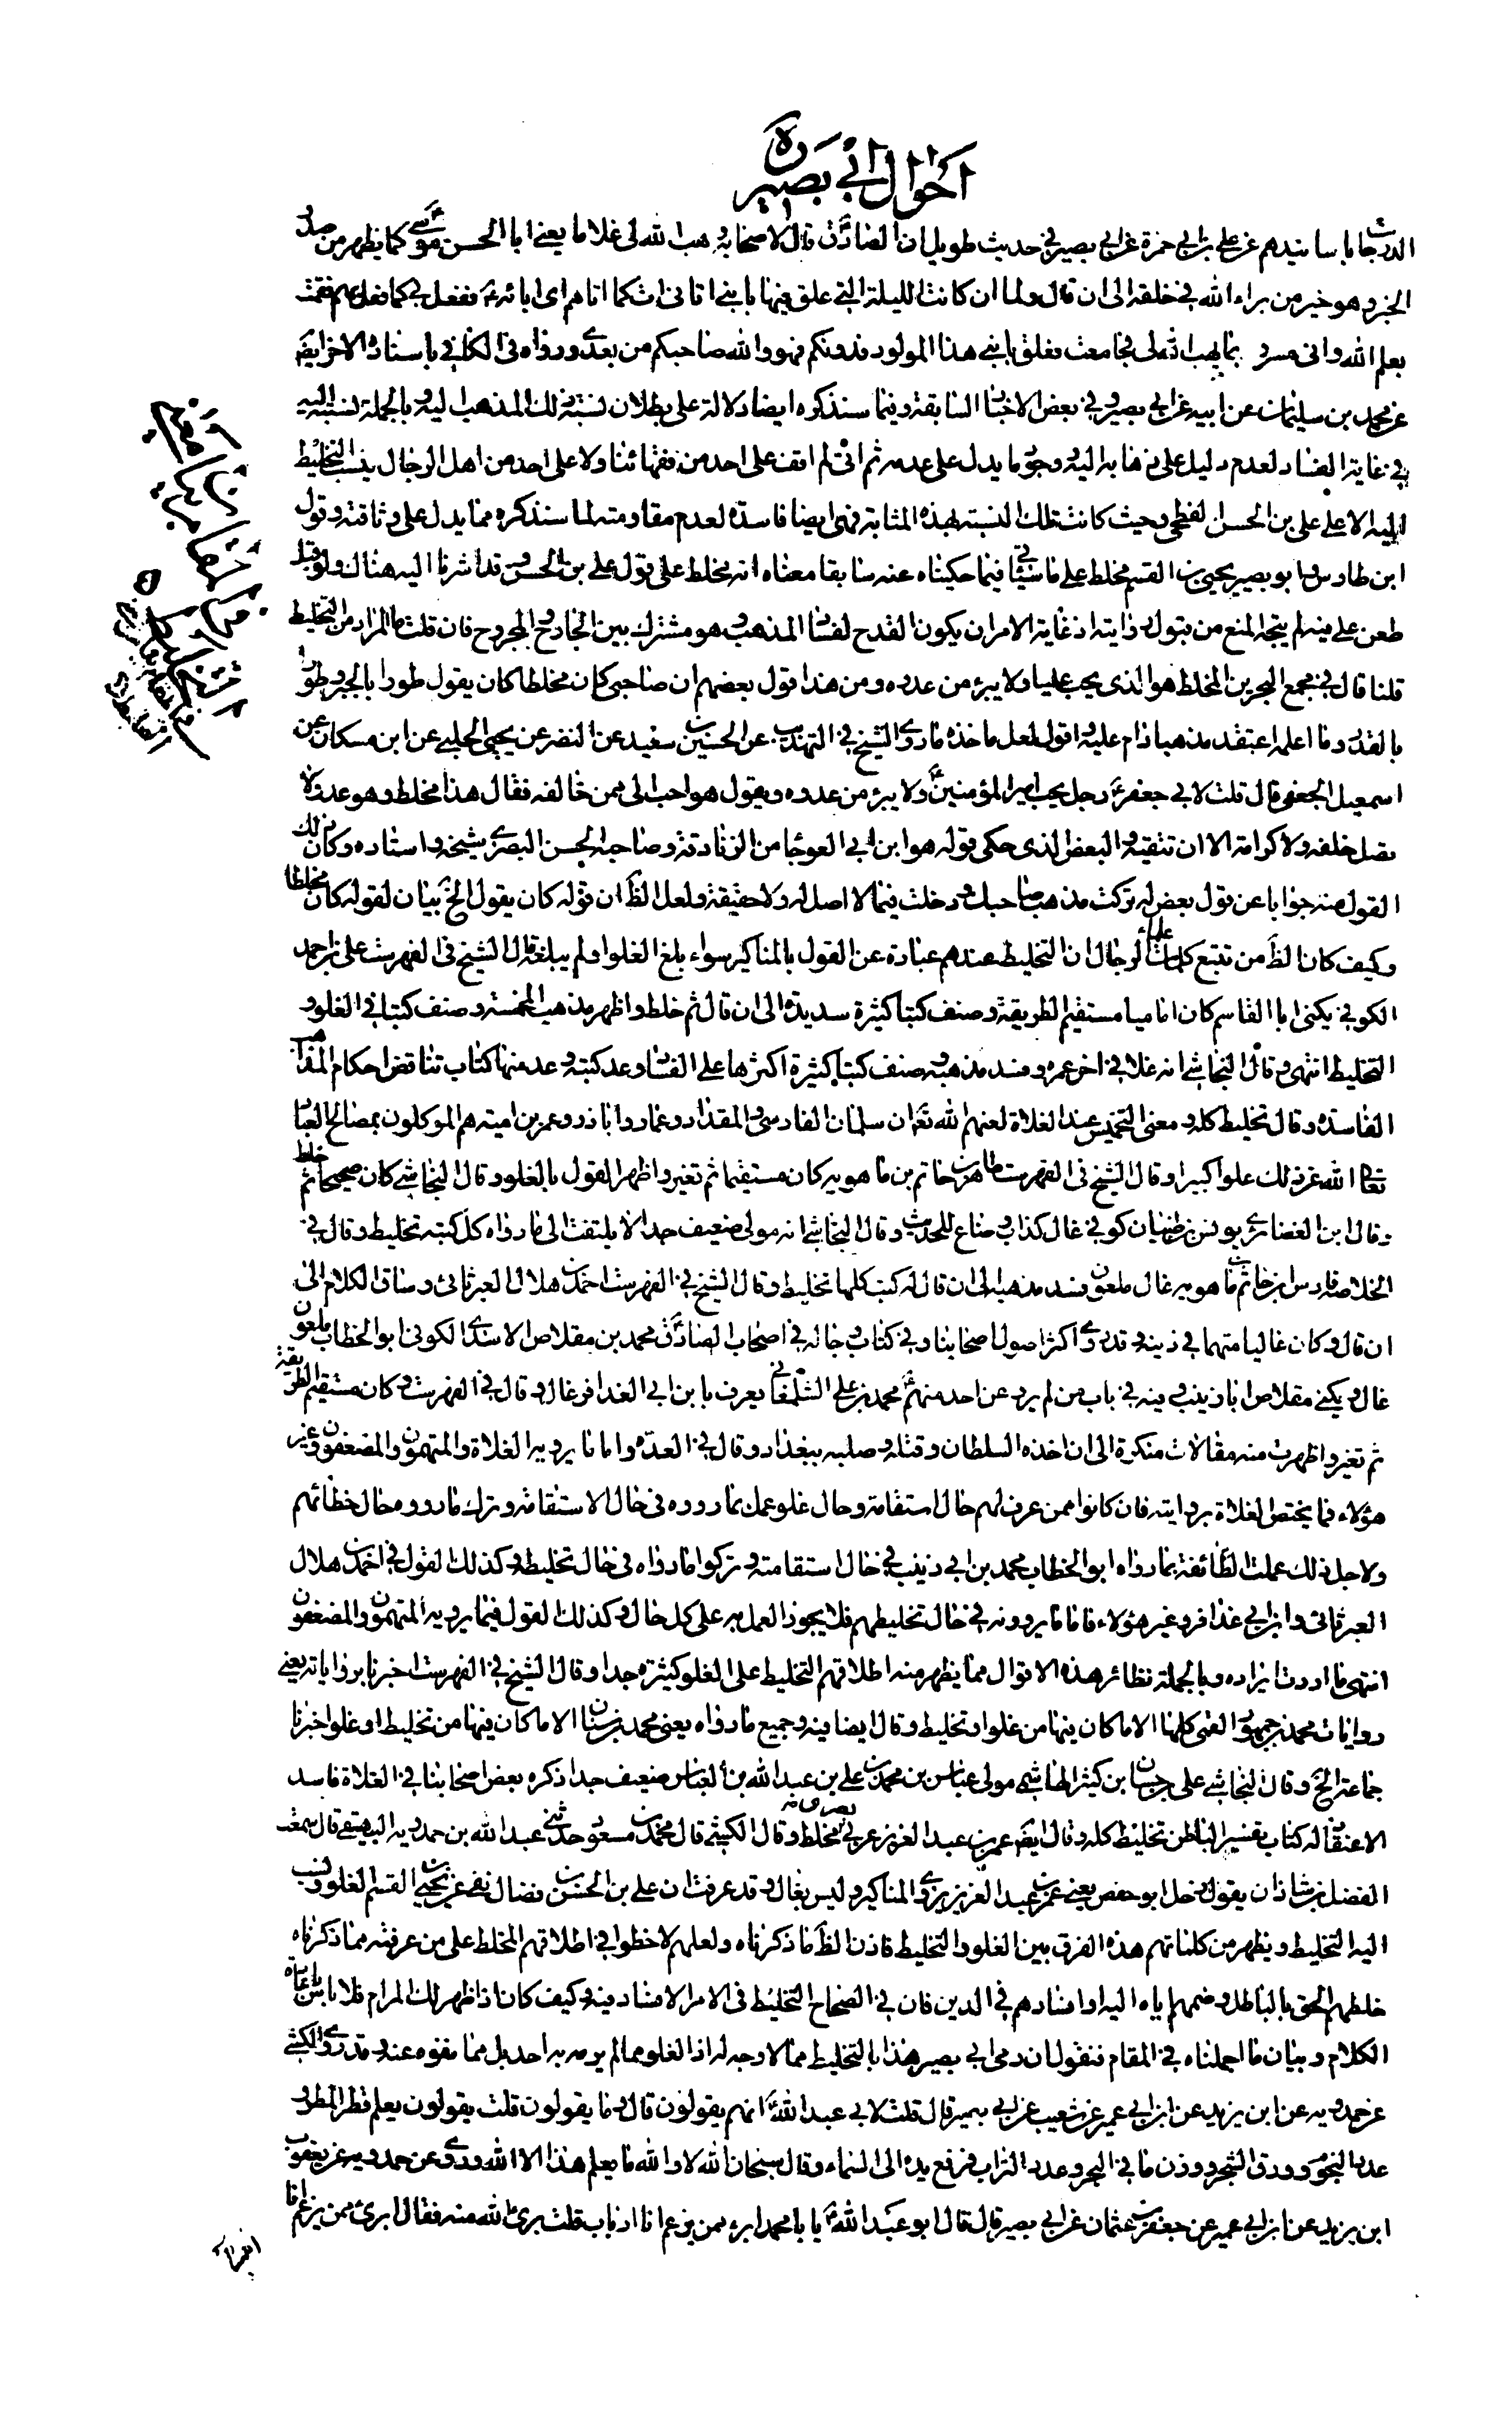 احوال ابي بصير
الدرجات باسانيدهم عن علي بن ابي حمزة عن ابي بصير في حديث طويل ان الصادق ع قال لاصحابه وهب الله لي غلاما يعني ابا الحسن موسى ع كما يظهر من صدر
الخبر وهو خير من براء الله في خلقه الى ان قال ولما ان كانت الليلة التي علق فيها بابني اتاني ات كما اتاهم اى ابائه ع ففعل بي كما فعل بهم فقمت
بعلم الله واني مسرور بما يهب الله لي فجامعت فعلق بابني هذا المولود فدونكم فهو والله صاحبكم من بعدي ورواه في الكافي باسناده الاخر ايضا
عن محمد بن سليمان عن ابيه عن ابي بصير وفي بعض الاخبار السابقة وفيما سنذكره ايضا دلالة على بطلان نسبة ذلك المذهب اليه وبالجملة نسبته اليه
في غاية الفساد لعدم دليل على ذهابه اليه ووجود ما يدل على عدمه ثم اني لم اقف على احد من فقهائنا ولا على احد من اهل الرجال ينسب التخليط
اليه الا على علي بن الحسن الفطحي وحيث كانت تلك النسبة بهذه المثابة فهي ايضا فاسدة لعدم مقاومته لما سنذكره مما يدل على وثاقته وقول
ابن طاوس وابو بصير يحيى بن القسم مخلط على ما شيئا فيما حكيناه عنه سابقا معناه انه مخلط على قول علي بن الحسن وقد اشرنا اليه هناك ولو قيل
طعن على فيه لم يتجه المنع من قبول روايته اذ غاية الامر ان يكون القدح لفساد المذهب وهو مشترك بين الجارح والمجروح فان قلت ما المراد من التخليط
قلنا قال في مجمع البحرين المخلط هو الذي يحب عليا ولا يبرء من عدوه ومن هذا قول بعضهم ان صاحبي كان مخلطا كان يقول طورا بالجبر وطورا
بالقدر وما اعلمه اعتقد مذهبا دام عليه واقول لعل ماخذه ما رواه الشيخ في التهذيب عن الحسين بن سعيد عن النضر عن يحيى الحلبي عن ابن مسكان عن
اسمعيل الجعفي قال قلت لابي جعفر ع رجل يحب امير المؤمنين ع ولا يبرء من عدوه ويقول هو احب الي ممن خالفه فقال هذا مخلط وهو عدو لا
تصل خلفه ولا كرامة الا ان تتقيه والبعض الذي حكى قوله هو ابن ابي العوجا من الزنادقة وصاحبه الحسن البصري شيخه واستاده وكان ذلك
القول منه جوابا عن قول بعض له تركت مذهب صاحبك ودخلت فيما لا اصل له ولا حقيقة ولعل الظ ان قوله كان يقول الخ بيان لقوله كان مخلطا
وكيف كان الظ من تتبع كلمات علماء الرجال ان التخليط عندهم عبارة عن القول بالمناكير سواء بلغ الغلو او لم يبلغه قال الشيخ في الفهرست علي بن احمد
الكوفي يكنى ابا القاسم كان اماميا مستقيم الطريقة وصنف كتبا كثيرة سديدة الى ان قال ثم خلط واظهر مذهب المخمسة وصنف كتبا في الغلو و
التخليط انتهى وقال النجاشي انه غلا في اخر عمره وفسد مذهبه وصنف كتبا كثيرة اكثرها على الفساد وعد كتبه وعد منها كتاب تناقض احكام المذاهب
الفاسدة وقال تخليط كله ومعنى التخميس عند الغلاة لعنهم الله تع ان سلمان الفارسي والمقداد وعمار وابا ذر وعمر بن امية هم الموكلون بمصالح العباد
تعالى الله عن ذلك علوا كبيرا وقال الشيخ في الفهرست طاهر بن حاتم بن ماهويه كان مستقيما ثم تغير واظهر القول بالغلو وقال النجاشي كان صحيحا ثم خلط
وقال ابن الغضائري يونس بن ظبيان كوفي غال كذاب وضاع للحديث وقال النجاشي انه مولى ضعيف جدا لا يلتفت الى ما رواه كل كتبه تخليط وقال في
الخلاصة فارس بن حاتم بن ماهويه غال ملعون فسد مذهبه الى ان قال له كتب كلها تخليط وقال الشيخ في الفهرست احمد بن هلال العبرتائي وساق الكلام الى
ان قال وكان غاليا متهما في دينه وقد روى اكثر اصول اصحابنا وفي كتاب رجاله في اصحاب الصادق ع محمد بن مقلاص الاسدي الكوفي ابو الخطاب ملعون
غال ويكنى مقلاص ابا زينب وفيه في باب من لم يرو عن احد منهم ع محمد بن علي الشلمغاني يعرف بابن ابي العذافر غال وقال في الفهرست وكان مستقيم الطريقة
ثم تغير واظهرت منه مقالات منكرة الى ان اخذه السلطان وقتله وصلبه ببغداد وقال في العدة واما ما يرويه الغلاة والمتهمون والمضعفون وغير
هؤلاء فما يختص الغلاة بروايته فان كانوا ممن عرف لهم حال استقامة وحال غلو عمل بما رووه في حال الاستقامة وترك ما رووه حال خطائهم
ولاجل ذلك عملت الطائفة بما رواه ابو الخطاب محمد بن ابي زينب في حال استقامته وتركوا ما رواه في حال تخليطه وكذلك القول في احمد بن هلال
العبرتائي وابن ابي عذافر وغير هؤلاء فاما ما يروونه في حال تخليطهم فلا يجوز العمل به على كل حال وكذلك القول فيما يرويه المتهمون والمضعفون
انتهى ما اردت ايراده وبالجملة نظائر هذه الاقوال مما يظهر منه اطلاقهم التخليط على الغلو كثيرة جدا وقال الشيخ في الفهرست اخبرنا برواياته يعني
روايات محمد بن جمهور العمي كلها الا ما كان فيها من غلو او تخليط وقال ايضا فيه وجميع ما رواه يعني محمد بن سنان الا ما كان فيها من تخليط او غلو اخبرنا
جماعة الخ وقال النجاشي علي بن حسان بن كثير الهاشمي مولى عباس بن محمد بن علي بن عبد الله بن العباس ضعيف جدا ذكره بعض اصحابنا في الغلاة فاسد
الاعتقاد له كتاب تفسير الباطن تخليط كله وقال ايضا عمر بن عبد العزيز عربي بصري مخلط وقال الكشي قال محمد بن مسعود حدثني عبد الله بن حمدويه البيهقي قال سمعت
الفضل بن شاذان يقول زحل ابو حفص يعني عمر بن عبد العزيز يروي المناكير وليس بغال وقد عرفت ان علي بن الحسن بن فضال نفى عن يحيى بن القسم الغلو ونسب
اليه التخليط ويظهر من كلماتهم هذه الفرق بين الغلو والتخليط فاذن الظ ما ذكرناه ولعلهم لاحظوا في اطلاقهم المخلط على من عرفته مما ذكرناه
خلطهم الحق بالباطل وضمهم اياه اليه او افسادهم في الدين فان في الصحاح التخليط في الامر الافساد فيه وكيف كان اذا ظهر لك المرام فلا باس
الكلام وبيان ما اجملناه في المقام فنقول ان رمي ابي بصير هذا بالتخليط مما لا وجه له اذ الغلو مما لم يرمه به احد بل مما نفوه عنه وقد روى الكشي
عن حمدويه عن ابن يزيد عن ابن ابي عمير عن شعيب عن ابي بصير قال قلت لابي عبد الله ع انهم يقولون قال وما يقولون قلت يقولون يعلم قطر المطر و
عدد النجوم وورق الشجر ووزن ما في البحر وعدد التراب فرفع يده الى السماء وقال سبحان الله لا والله ما يعلم هذا الا الله وروى عن حمدويه عن يعقوب
ابن يزيد عن ابن ابي عمير عن جعفر بن عثمان عن ابي بصير قال قال ابو عبد الله ع يا با محمد ابرء ممن يزعم انا ارباب قلت برئ الله منه فقال ابرئ ممن يزعم انا